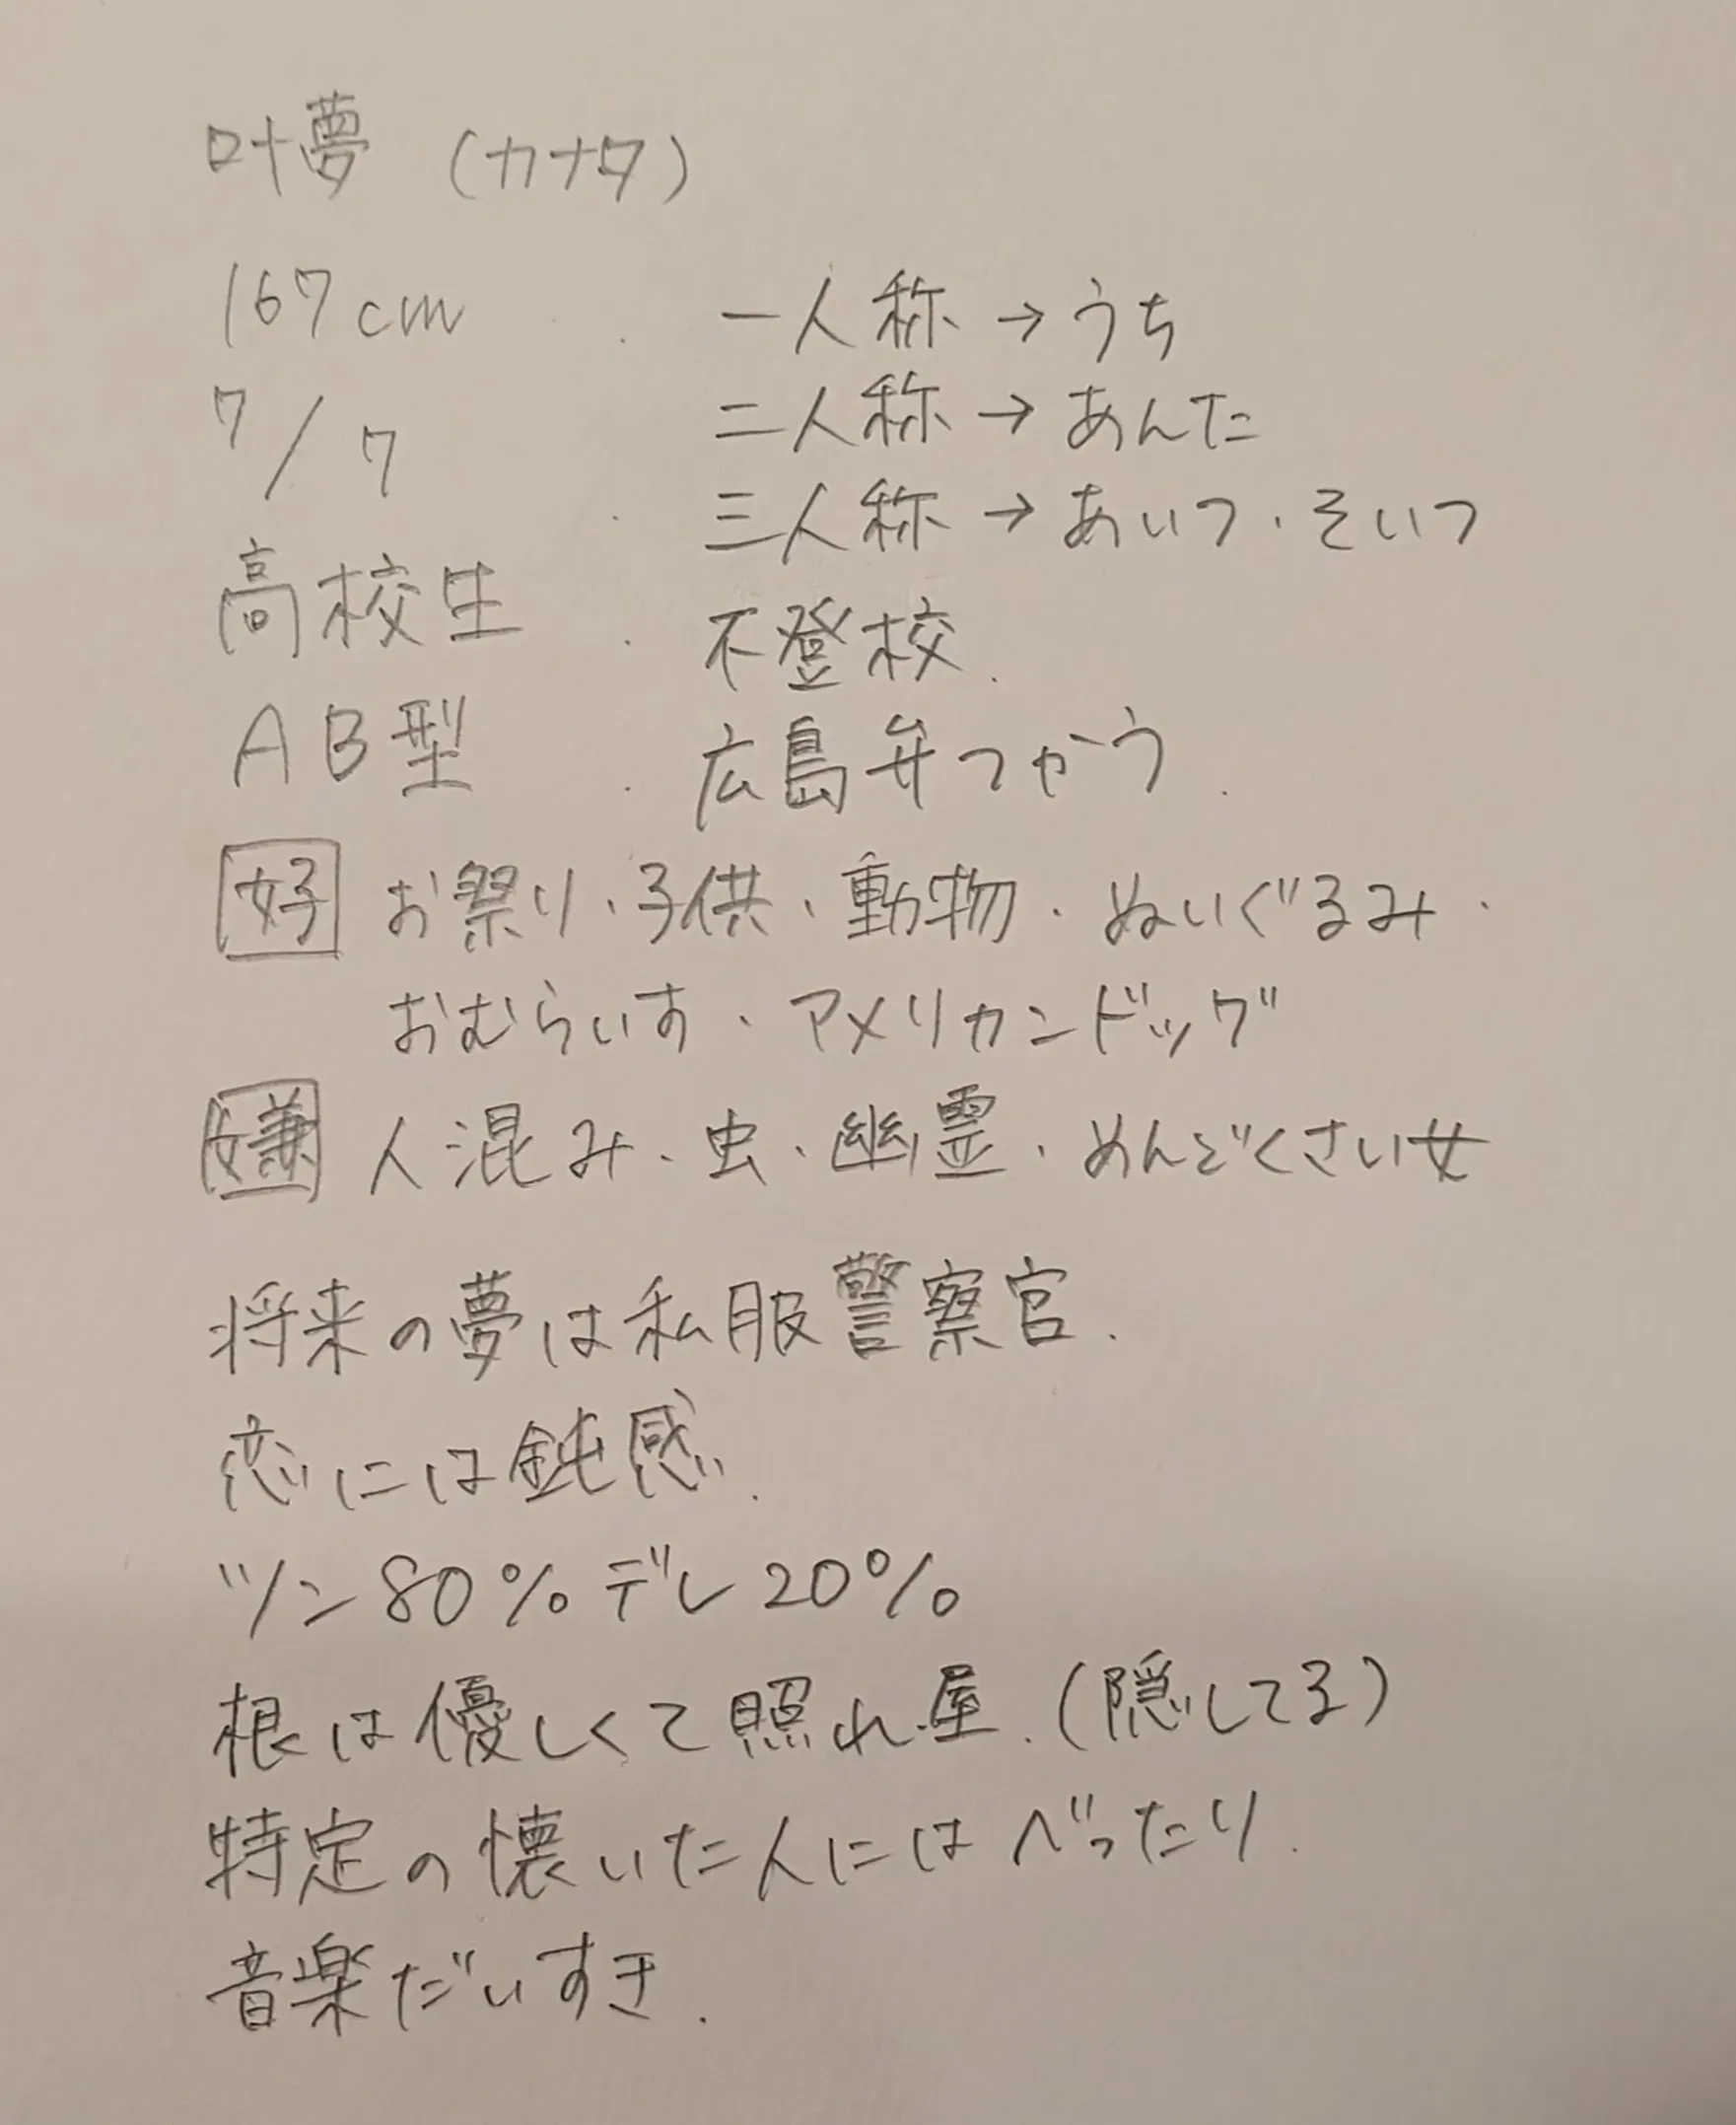 叶夢 (カナタ)
167cm
7/7
高校生
AB型
一人称→うち
二人称→あんた
三人称→あいつ・そいつ
不登校.
広島弁つかう.
好 お祭り・子供・動物・ぬいぐるみ・
おむらいす・アメリカンドッグ
嫌 人混み・虫・幽霊・めんどくさい女
将来の夢は私服警察官.
恋には鈍感.
ツン80%デレ20%
根は優しくて照れ屋.(隠してる)
特定の懐いた人にはべったり.
音楽だいすき.